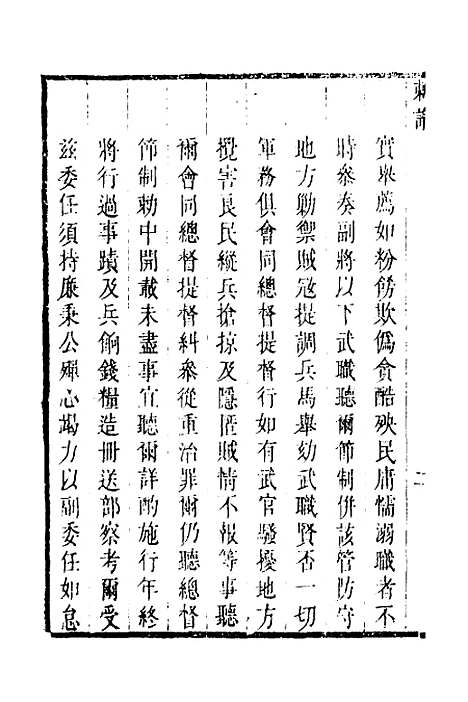 勅諭
實舉薦如粉餙欺僞貪酷殃民庸懦溺職者不
時叅奏副將以下武職聽爾節制併該管防守
地方勦禦賊冦提調兵馬舉劾武職賢否一切
軍務俱會同總督提督行如有武官騷擾地方
攪害良民縱兵搶掠及隱匿賊情不報等事聽
爾會同總督提督糾叅從重治罪爾仍聽總督
節制勅中開載未盡事宜聽爾詳酌施行年終
將行過事蹟及兵餉錢糧造冊送部察考爾受
兹委任須持廉秉公殫心竭力以副委任如怠